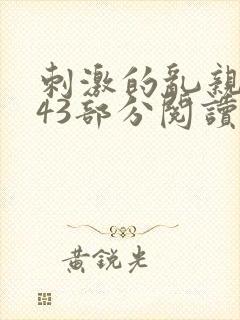 刺激的亂親
43部分閱讀
黃銳光